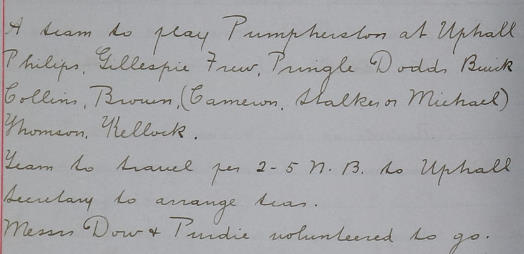 A team to play Pumpherston at Uphall
Philips, Gillespie Frew, Pringle Dodds Buick
Collins, Brown, (Cameron, Stalker or Michael)
Thomson, Kellock.
Team to travel per 2-5 N.B. to Uphall
Secretary to arrange teas.
Messrs Dow & Purdie volunteered to go.